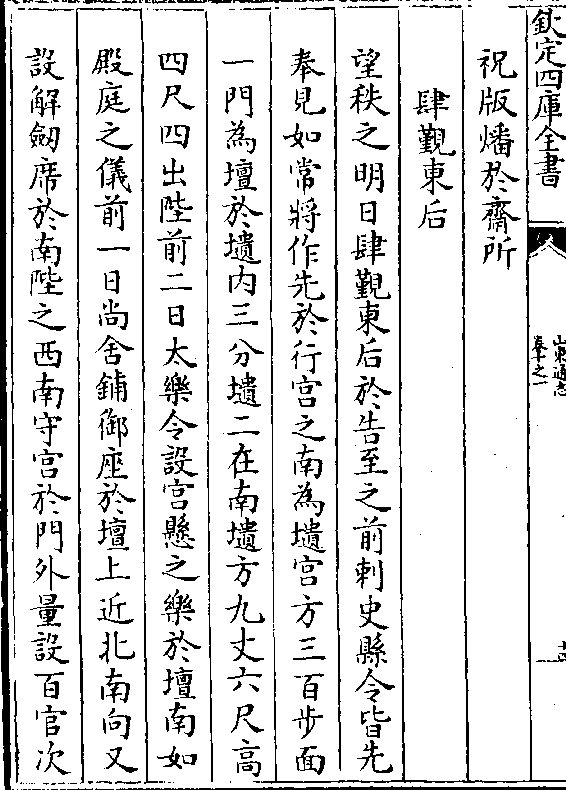 欽定四庫全書
山東通志
卷十之一
祝版燔於齋所
肆覲東后
望秩之明日肆覲東后於告至之前刺史縣令皆先
奉見如常將作先於行宮之南為壝宮方三百步面
一門為壇於壝内三分壝二在南壝方九丈六尺高
四尺四出陛前二日太樂令設宮懸之樂於壇南如
殿庭之儀前一日尚舍鋪御座於壇上近北南向又
設解劒席於南陛之西南守宮於門外量設百官次